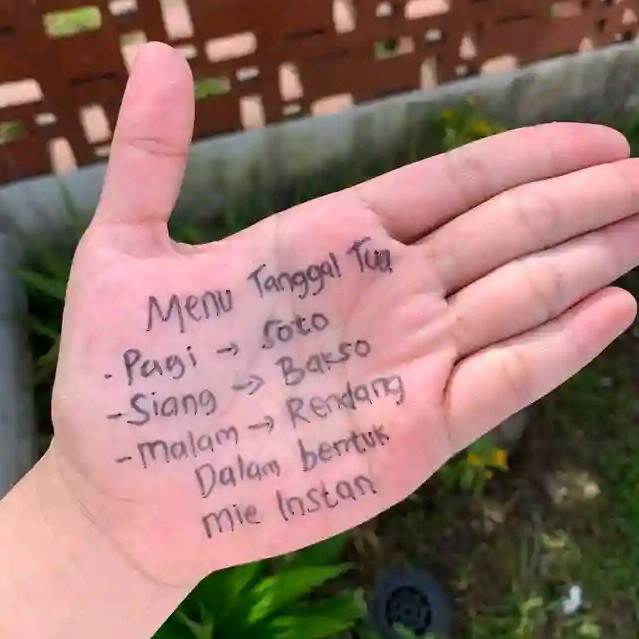 Menu Tanggal Tua
- Pagi → Soto
- Siang → Bakso
- malam → Rendang
Dalam bentuk
mie Instan